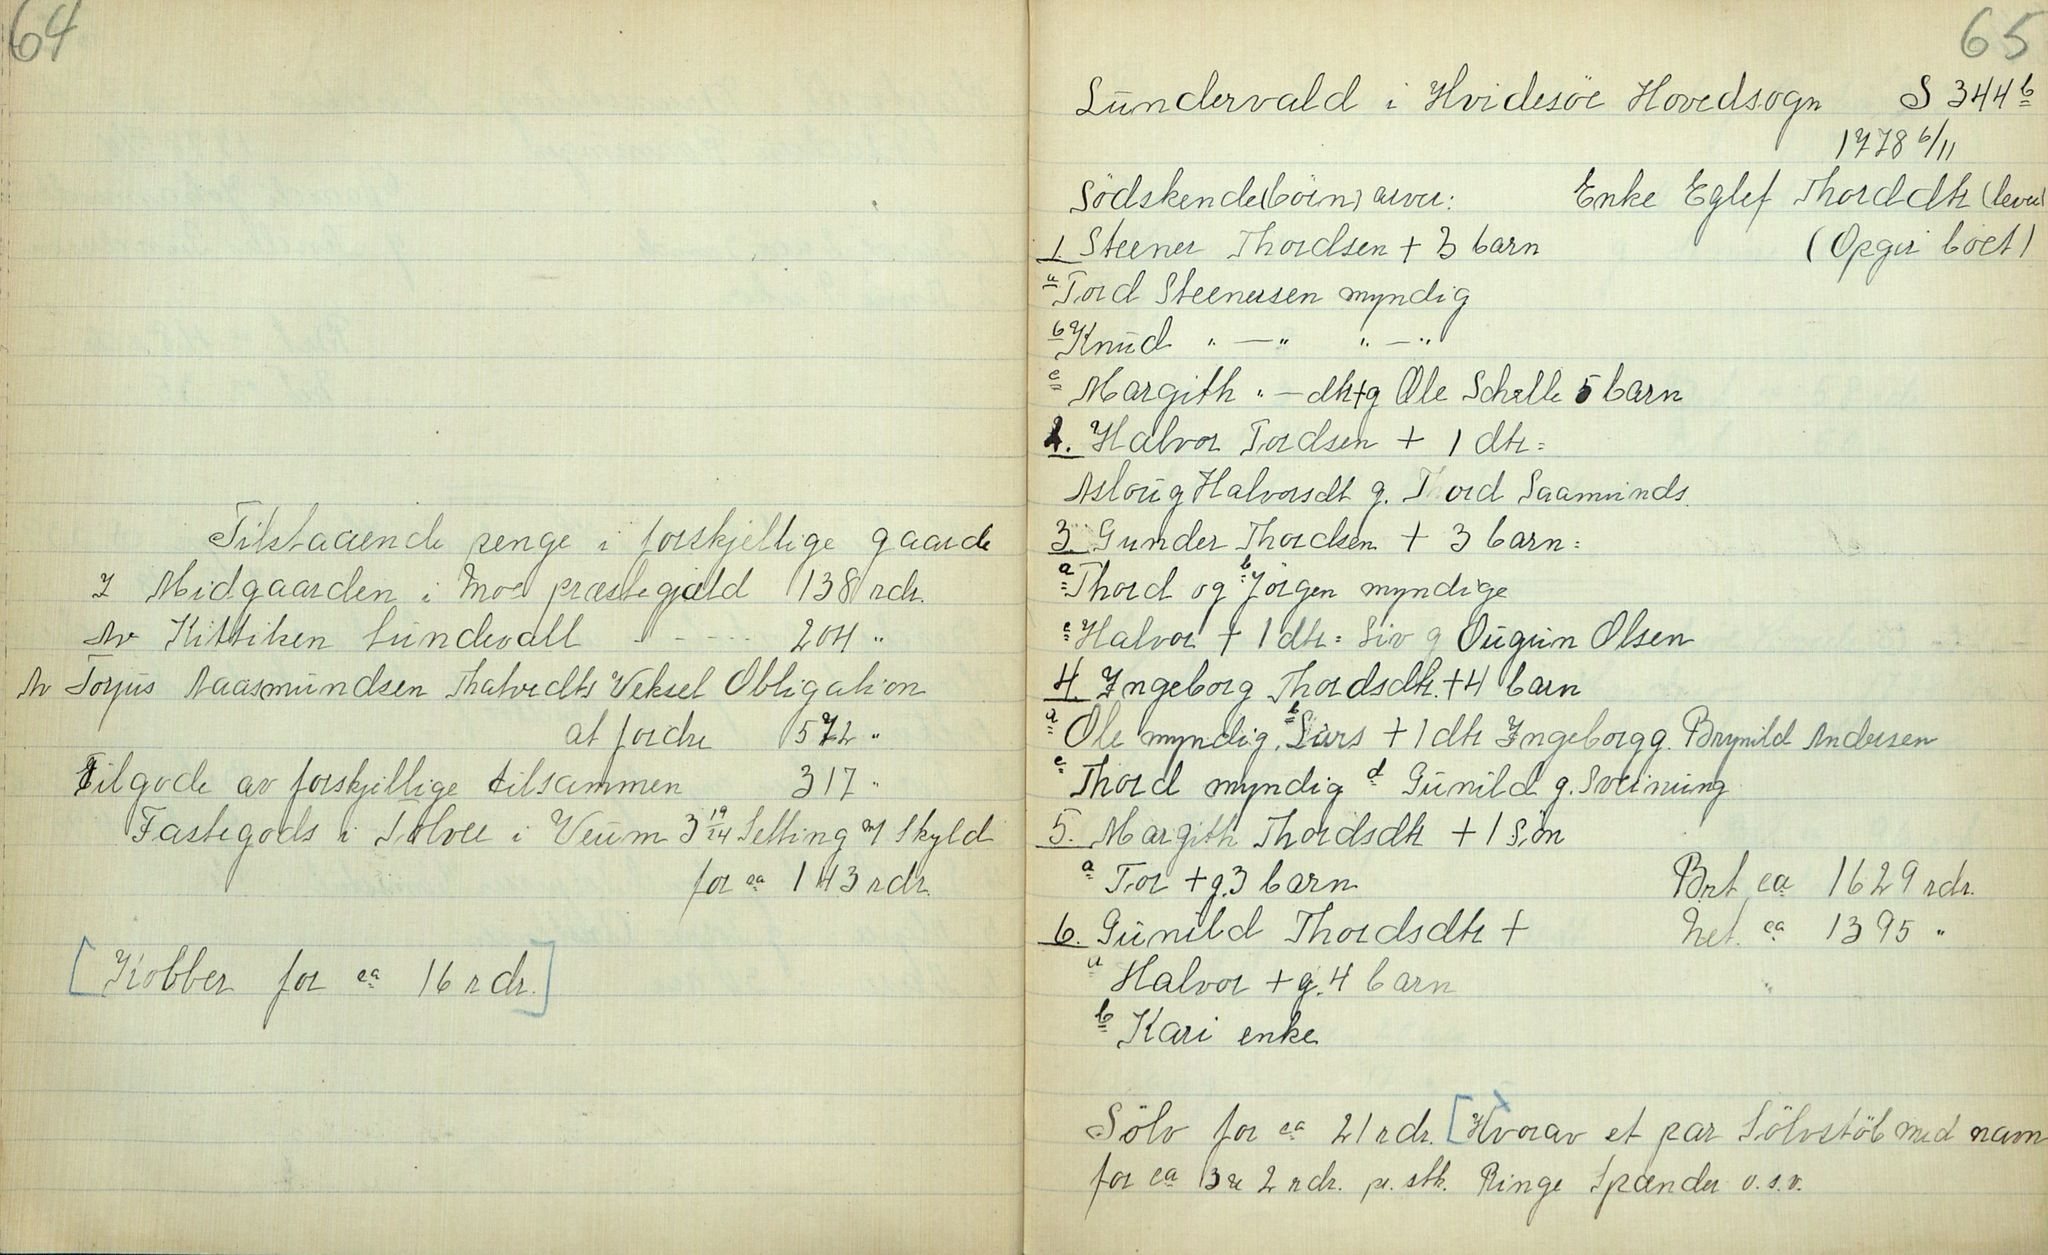 64
Tilstaaende penge i forskjellige gaarde
I Midgaarden i Moe præstegjæld 138 rdr.
Av Kittiken Sundevall - - - - 204 "
Av Torjus Aasmundsen Veksel Obligation
at fordre 572 "
Tilgode av forskjellige tilsammen 317 "
Fastegods i i Veum 3 19/24 Setting m/ Skyld
for ca 143 rdr.
[Kobber for ca 16 rdr.]
65
Sundervald i Hvidesöe Hovedsogn S 344 b
1778 6/11
Södskende(börn) arver: Enke Eglef Thorddtr (lever)
1. Steener Thordsen + 3 barn (Opgir boet)
a Tord Steenersen myndig
b Knud " — " " — "
c Margith " — dtr + g Ole Schelle 5 barn
2. Halvor Tordsen + 1 dtr =
Asloug Halvorsdt g. Tord Saamunds.
3. Gunder Thordsen + 3 barn =
a Thord og b Jörgen myndige
c Halvor + 1 dtr = Siv g Ougun Olsen
4. Ingeborg Thordsdtr. + 4 barn
a Ole myndig, b Lars + 1 dtr Ingeborg g. Brynild Andersen
c Thord myndig d Gunild g. Sveinung
5. Margith Thordsdtr + 1 Sön
a Tor + g. 3 barn Brt ca 1629 rdr.
6. Gunild Thordsdtr + Net. ca 1395 "
a Halvor + g. 4 barn "
b Kari enke
Sölv for ca 21 rdr. [Hvorav et par Sölvstöb med navn
for ca 3 a 2 rdr. pr. stk. Ringe Spænder o.s.v.